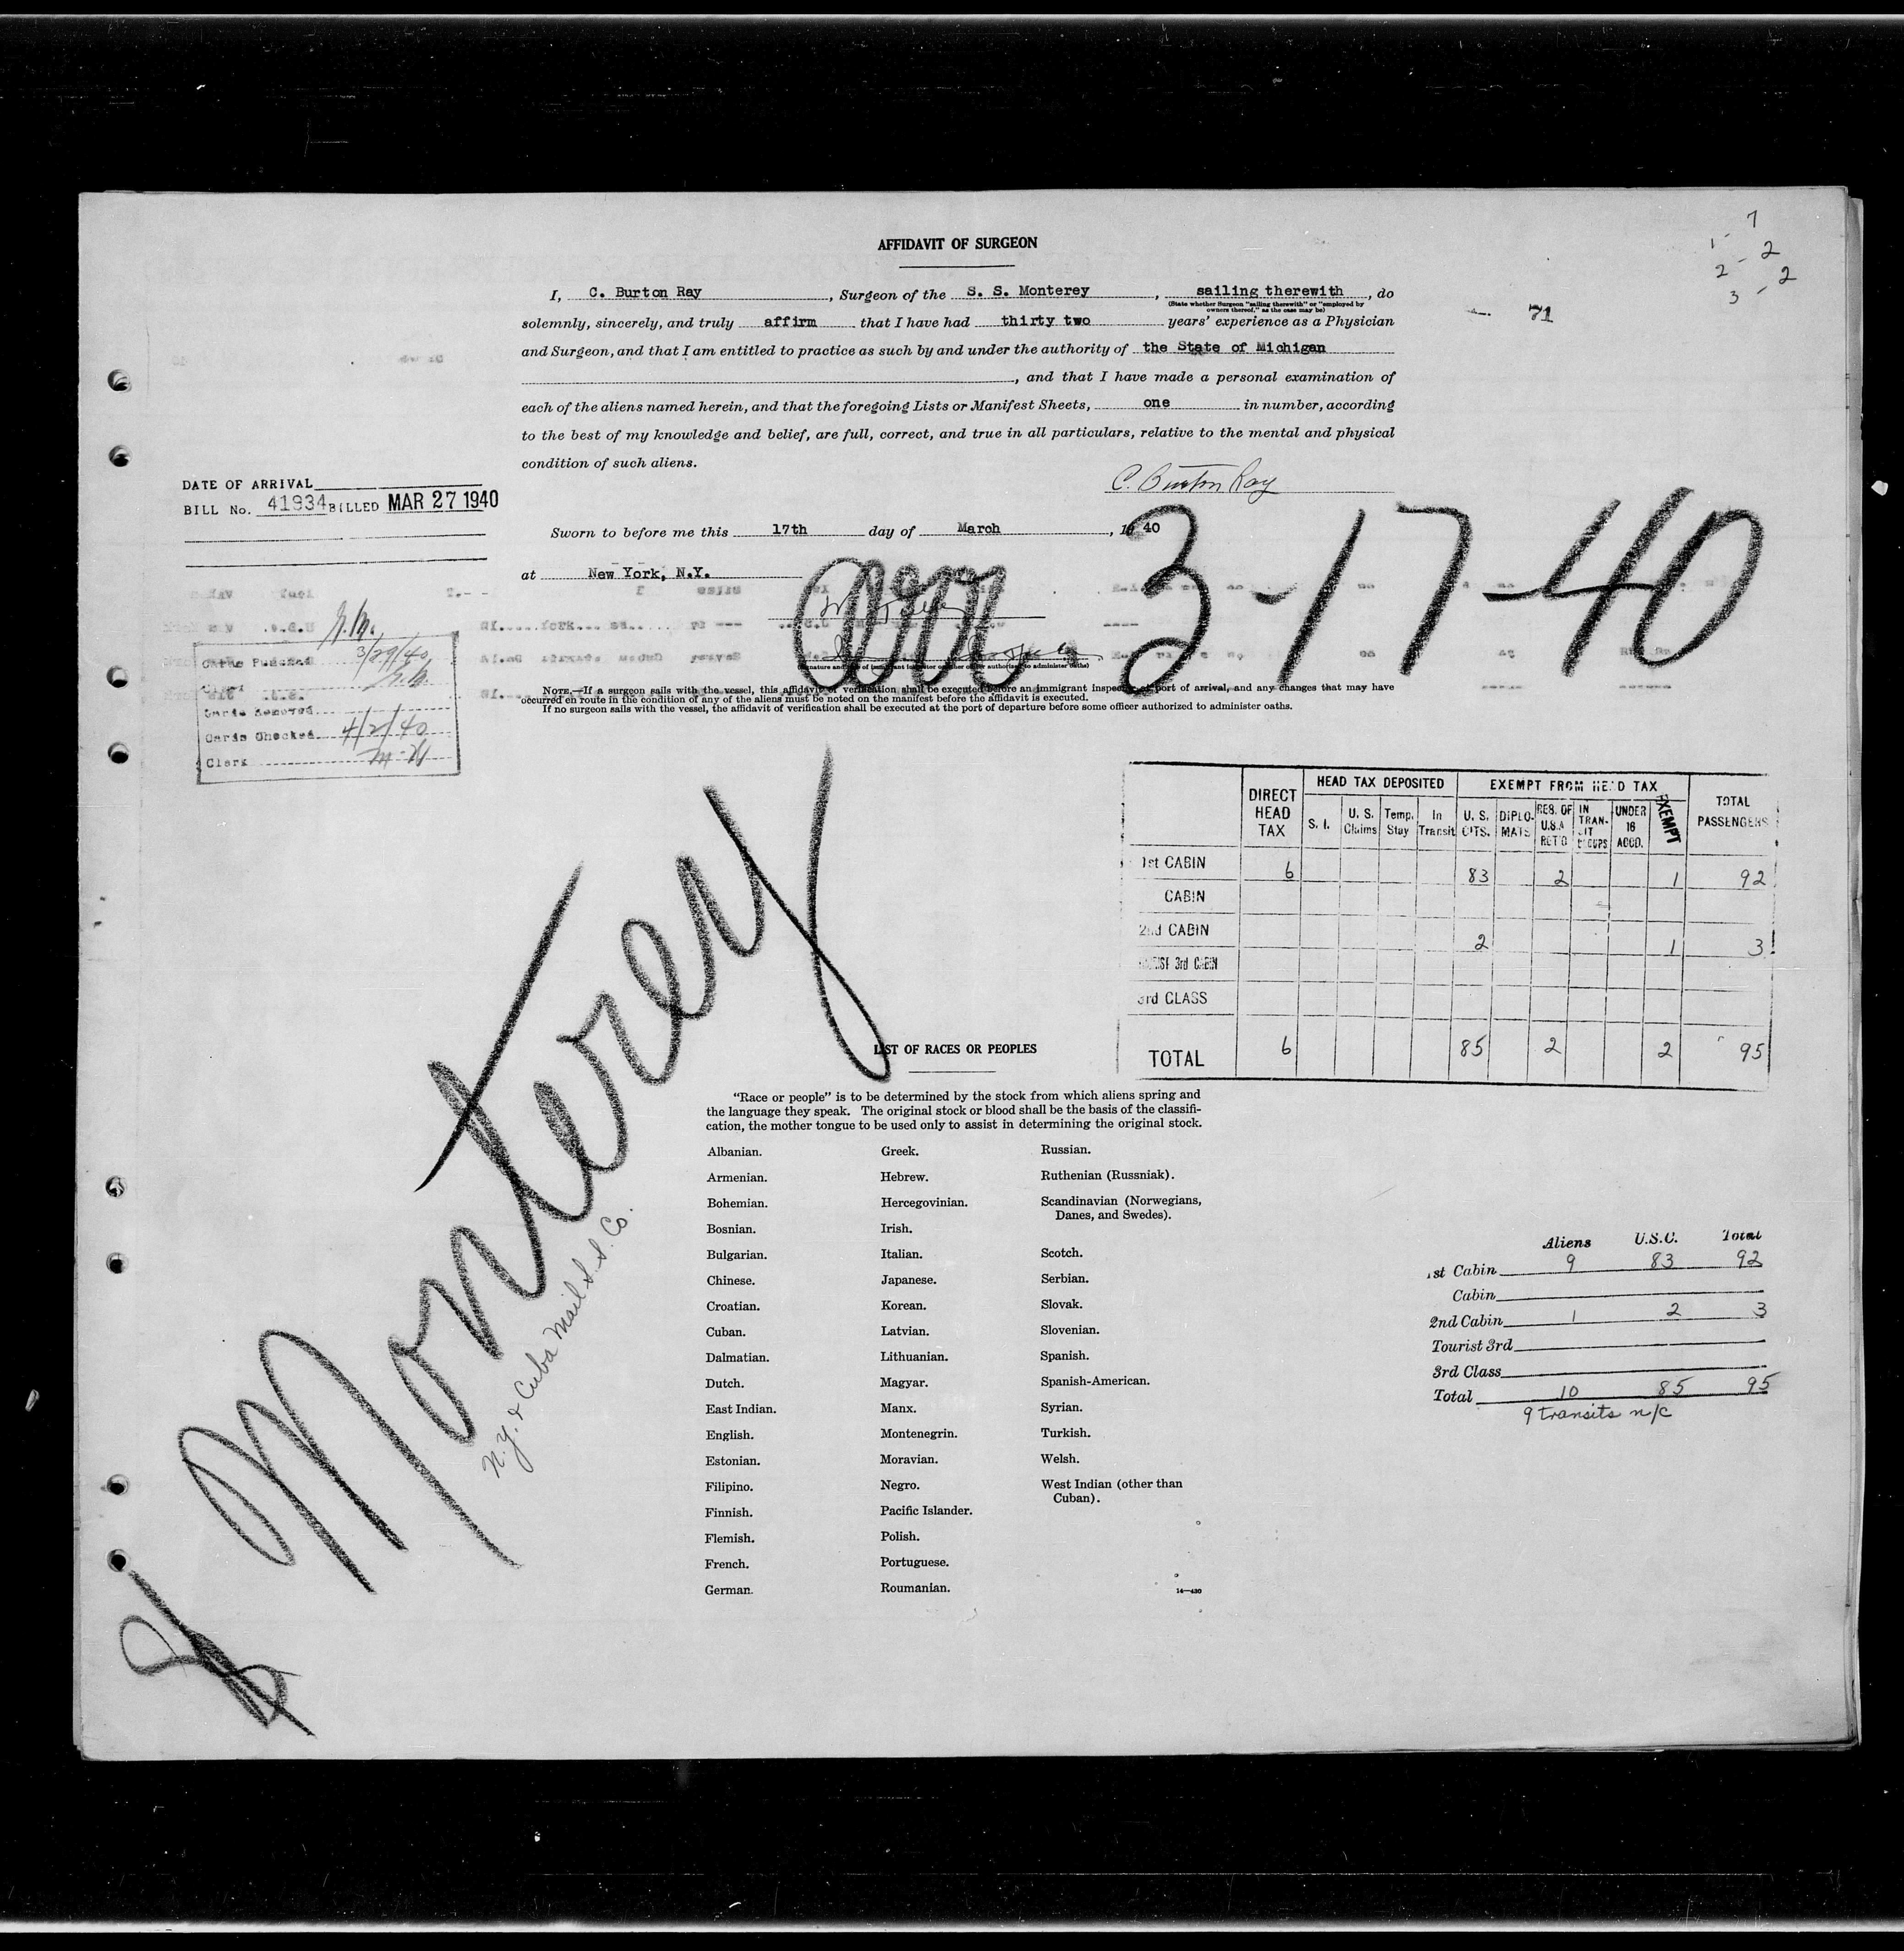 AFFIDAVIT OF SURGEON
1 - 7
2 - 2
3 - 2
71
I, C. Burton Ray, Surgeon of the S. S. Monterey, sailing therewith, do
(State whether Surgeon "sailing therewith" or "employed by
owners thereof," as the case may be)
solemnly, sincerely, and truly affirm that I have had thirty two years' experience as a Physician
and Surgeon, and that I am entitled to practice as such by and under the authority of the State of Michigan
, and that I have made a personal examination of
each of the aliens named herein, and that the foregoing Lists or Manifest Sheets, one in number, according
to the best of my knowledge and belief, are full, correct, and true in all particulars, relative to the mental and physical
condition of such aliens.
C. Burton Ray
DATE OF ARRIVAL
BILL No. 41934 BILLED MAR 27 1940
Sworn to before me this 17th day of March, 1940
at New York, N.Y.
3-17-40
Cards Punched 3/29/40
Cards Removed
Cards Checked 4/2/40
Clerk
(Signature and title of immigrant inspector or other officer authorized to administer oaths)
NOTE.—If a surgeon sails with the vessel, this affidavit of verification shall be executed before an immigrant inspector at port of arrival, and any changes that may have
occurred en route in the condition of any of the aliens must be noted on the manifest before the affidavit is executed.
If no surgeon sails with the vessel, the affidavit of verification shall be executed at the port of departure before some officer authorized to administer oaths.
Monterey
N.Y. & Cuba Mail S.S. Co.
DIRECT HEAD TAX HEAD TAX DEPOSITED EXEMPT FROM HEAD TAX TOTAL PASSENGERS
S. I. U. S. Claims Temp. Stay In Transit U. S. CITS. DIPLOMATS RES. OF U.S.A RET'D IN TRANSIT GROUPS UNDER 16 ACCD. EXEMPT
1st CABIN 6 83 2 1 92
CABIN
2nd CABIN 2 1 3
TOURIST 3rd CABIN
3rd CLASS
TOTAL 6 85 2 2 95
LIST OF RACES OR PEOPLES
"Race or people" is to be determined by the stock from which aliens spring and
the language they speak. The original stock or blood shall be the basis of the classifi-
cation, the mother tongue to be used only to assist in determining the original stock.
Albanian.
Armenian.
Bohemian.
Bosnian.
Bulgarian.
Chinese.
Croatian.
Cuban.
Dalmatian.
Dutch.
East Indian.
English.
Estonian.
Filipino.
Finnish.
Flemish.
French.
German.
Greek.
Hebrew.
Hercegovinian.
Irish.
Italian.
Japanese.
Korean.
Latvian.
Lithuanian.
Magyar.
Manx.
Montenegrin.
Moravian.
Negro.
Pacific Islander.
Polish.
Portuguese.
Roumanian.
Russian.
Ruthenian (Russniak).
Scandinavian (Norwegians,
Danes, and Swedes).
Scotch.
Serbian.
Slovak.
Slovenian.
Spanish.
Spanish-American.
Syrian.
Turkish.
Welsh.
West Indian (other than
Cuban).
14—430
Aliens U.S.C. Total
1st Cabin 9 83 92
Cabin
2nd Cabin 1 2 3
Tourist 3rd
3rd Class
Total 10 85 95
9 transits n/c